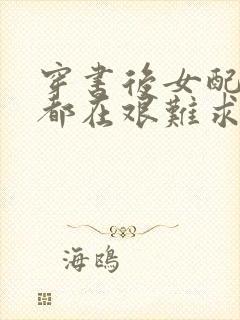 穿書後女配
都在艱難求
海鴎